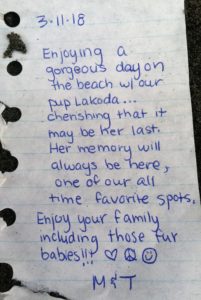 3-11-18
Enjoying a
gorgeous day on
the beach w/our
pup Lakoda...
cherishing that it
may be her last.
Her memory will
always be here,
one of our all
time favorite spots.
Enjoy your family
including those fur
babies!!! ♡☮☺
M & T